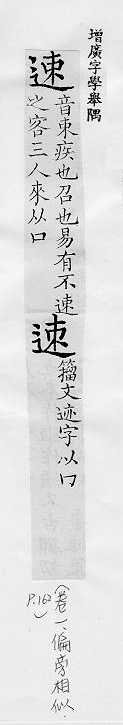 增廣字學舉隅
速 音束疾也召也易有不速
之客三人來从口
速 籀文迹字以口
(卷一、偏旁相似、
P.162)